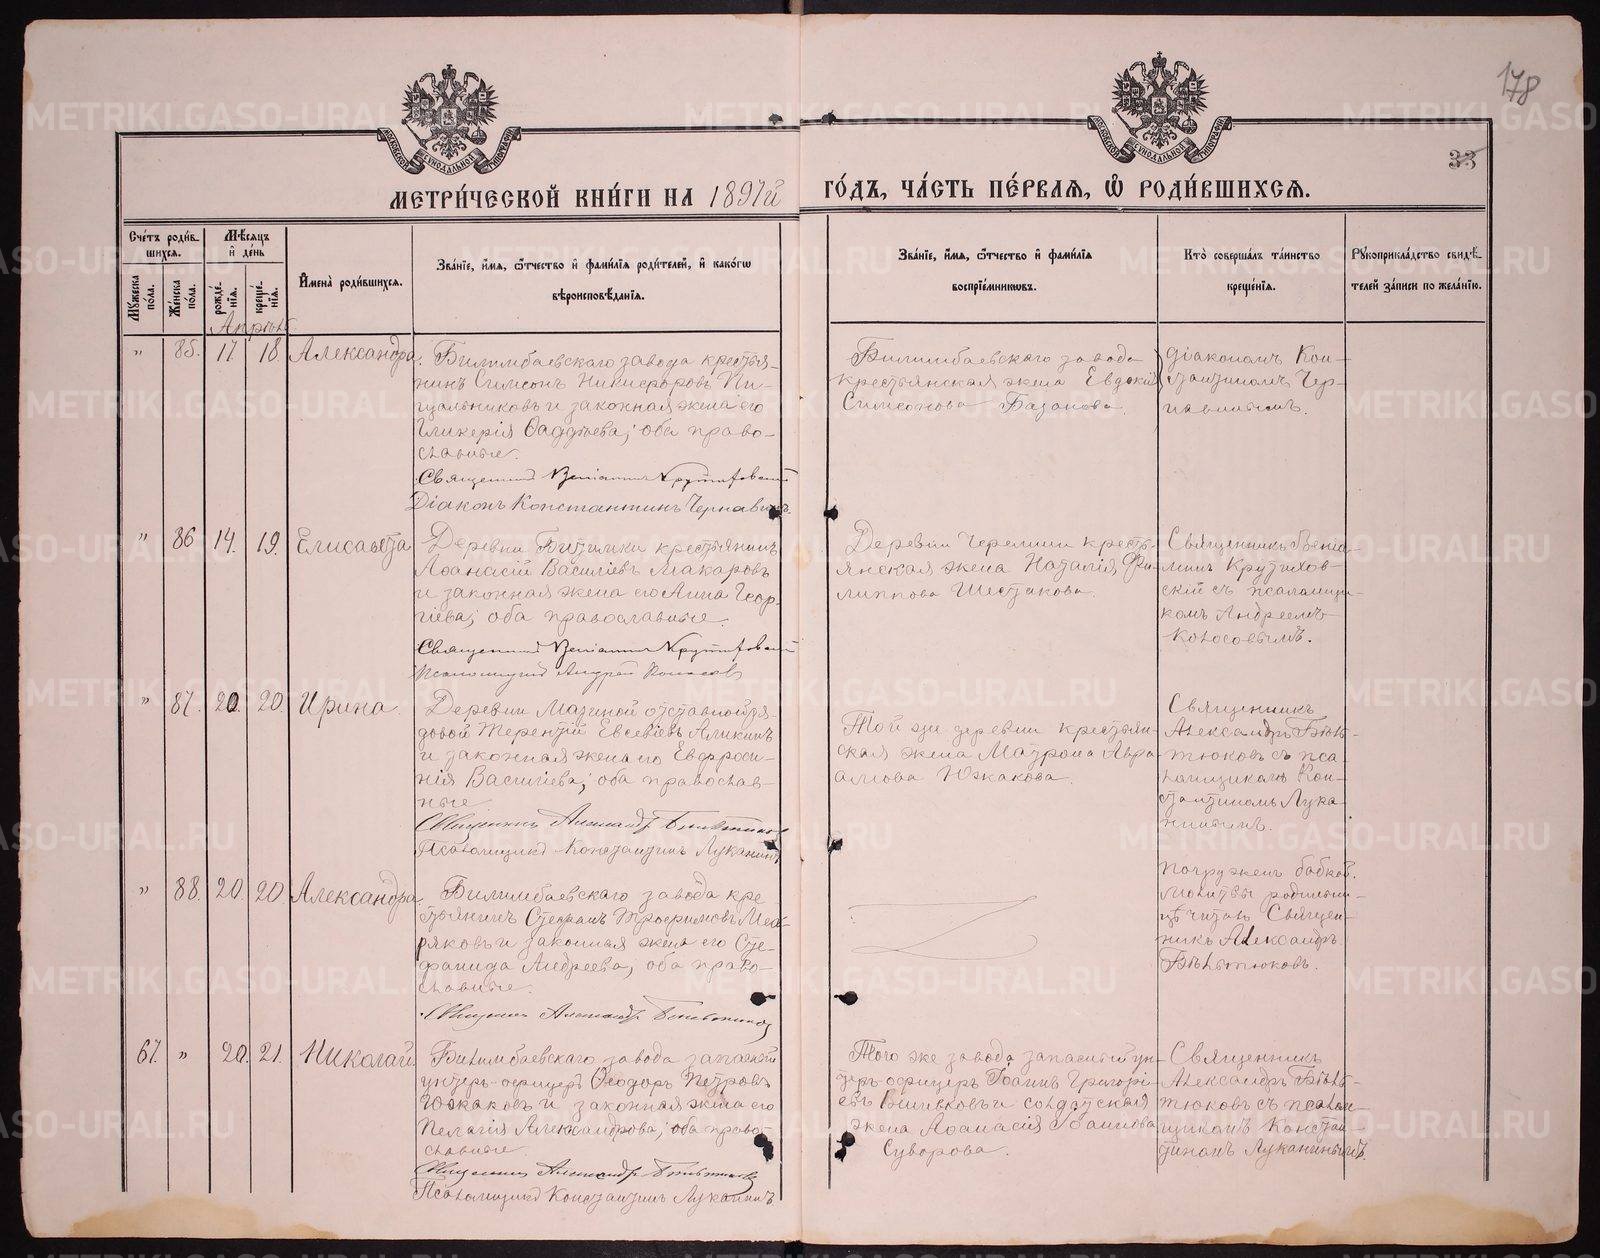 178
33
МЕТРИ́ЧЕСКОЙ КНИ́ГИ НА 1897й ГО́ДЪ, ЧА́СТЬ ПЕ́РВАЯ, Ѡ РОДИ́ВШИХСЯ.
Счетъ роди́вшихся.
Мѣ́сяцъ и де́нь
Мꙋ́жеска по́ла.
Же́нска по́ла.
рожде́нїѧ.
креще́нїѧ.
И҆мена̀ роди́вшихся.
Зва́нїе, и҆́мѧ, ѻ҆́тчество и҆ фами́лїѧ роди́телей, и҆ како́гѡ
вѣроисповѣ́данїѧ.
Зва́нїе, и҆́мѧ, ѻ҆́тчество и҆ фами́лїѧ
воспрїе́мникѡвъ.
Кто̀ соверша́лъ та́инство
креще́нїѧ.
Рꙋкоприкла́дство свидѣ́-
телей за́писи по жела́нїю.
Апрѣль
" 85. 17 18 Александра.
Билимбаевскаго завода крестья-
нинъ Симеонъ Никифоровъ Пи-
щальниковъ и законная жена его
Гликерія Ѳаддѣева; оба право-
славные.
Священникъ Веніаминъ Крутиховскій
Діаконъ Константинъ Чернавинъ.
Билимбаевскаго завода
крестьянская жена Евдокія
Симеонова Базанова.
Діакономъ Кон-
стантиномъ Чер-
навинымъ.
" 86 14. 19. Елисавета
Деревни Битимки крестьянинъ
Аѳанасій Василіевъ Макаровъ
и законная жена его Анна Геор-
гіева; оба православные.
Священникъ Веніаминъ Крутиховскій
Псаломщикъ Андрей Колосовъ
Деревни Черемши кресть-
янская жена Наталія Фи-
липпова Шестакова.
Священникъ Веніа-
минъ Крутихов-
скій съ псаломщи-
комъ Андреемъ
Колосовымъ.
" 87. 20. 20. Ирина.
Деревни Мазиной отставной ря-
довой Терентій Евсевіевъ Аликинъ
и законная жена его Евфроси-
нія Васильева; оба православ-
ные.
Священникъ Александръ Бѣльтюковъ
Псаломщикъ Константинъ Луканинъ
Той же деревни крестьян-
ская жена Матрона Авра-
амова Южакова.
Священникъ
Александръ Бѣль-
тюковъ съ пса-
ломщикомъ Кон-
стантиномъ Лука-
нинымъ.
" 88. 20. 20. Александра
Билимбаевскаго завода кре
стьянинъ Стефанъ Трофимовъ Меха-
ряковъ и законная жена его Сте-
фанида Андреева; оба право-
славные.
Священникъ Александръ Бѣльтюковъ
Погруженъ бабкой.
Молитвы родильни-
цѣ читалъ Священ-
никъ Александръ
Бѣльтюковъ.
67. " 20. 21. Николай.
Билимбаевскаго завода запасный
унтеръ-офицеръ Ѳеодоръ Петровъ
Южаковъ и законная жена его
Пелагія Александрова; оба право-
славные.
Священникъ Александръ Бѣльтюковъ
Псаломщикъ Константинъ Луканинъ.
Того же завода запасный ун-
теръ-офицеръ Іоаннъ Григорі-
евъ Вшивковъ и солдатская
жена Аѳанасія Іоаннова
Суворова.
Священникъ
Александръ Бѣль-
тюковъ съ псалом-
щикомъ Констан-
тиномъ Луканинымъ.
METRIKI.GASO-URAL.RU